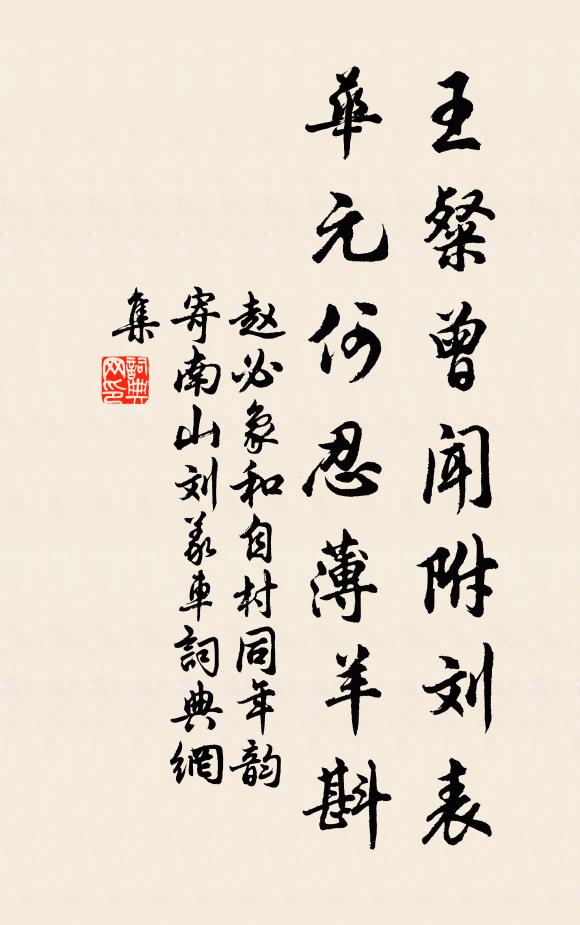 王粲曾闻附刘表
華元何忍薄羊斟
赵必象和自村同年韵
寄南山刘义车詞典網
集
詞典网印